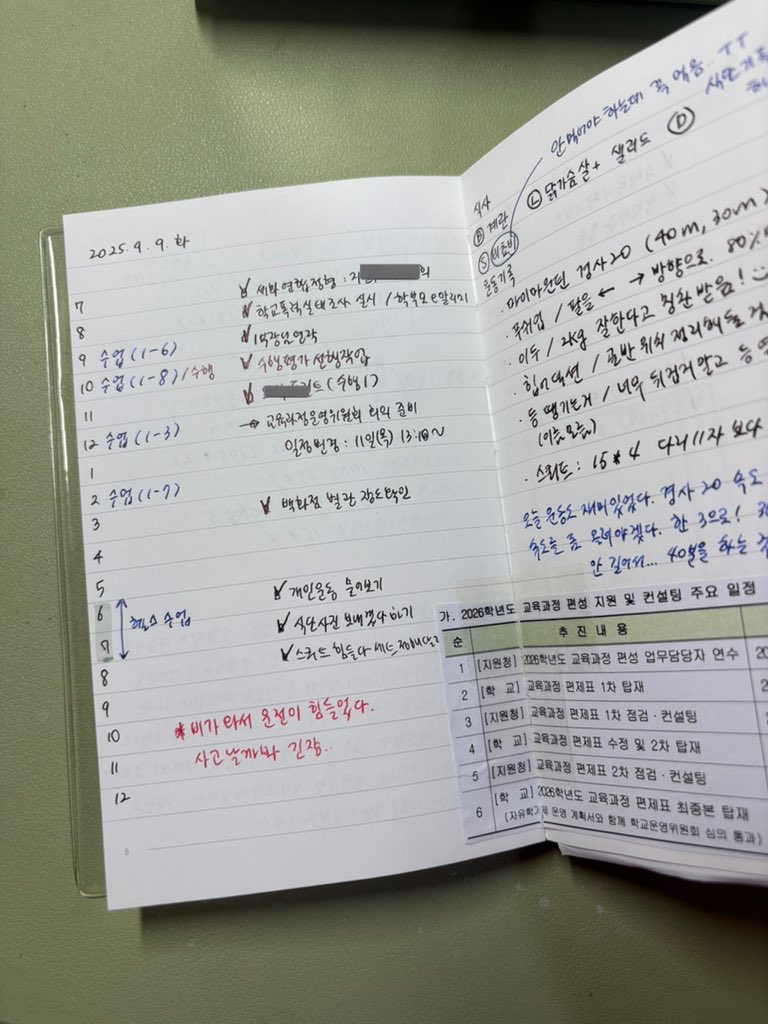 2025. 9. 9. 화
7
8
9 수업 (1-6)
10 수업 (1-8) / 수행
11
12 수업 (1-3)
1
2 수업 (1-7)
3
4
5
6
7
헬스 수업
8
9
10
11
12
✓ 학교폭력실태조사 실시 / 학부모 e알리미
✓ 수행평가 선행작업
(수행1)
→ 교육과정운영위원회 회의 준비
일정변경 : 11일(목) 13:10~
✓ 백화점 별관
✓ 개인운동 물어보기
✓ 식단사진 보내겠다 하기
✓ 스쿼트 힘들다
* 비가 와서 운전이 힘들었다.
사고날까봐 긴장..
6
안먹어야 하는데 꼭 먹음.. ㅜㅜ
식사
Ⓑ 계란
Ⓛ 닭가슴살 + 샐러드 Ⓓ
Ⓢ
운동기록
· 마이마운틴 경사20 (40m, 30m)
· 푸쉬업 / 팔을 ← → 방향으로. 80%
· 이두 / 잘한다고 칭찬 받음!
· 등 땡기는거 / 너무 뒤집지말고 등
(이름모름)
· 스쿼트 : 15 * 4 다리 11자 보다
오늘 운동도 재미있었다. 경사20 속도
속도를 좀 올려야겠다. 한 3으로!
안 길어서... 40분을 하는
가. 2026학년도 교육과정 편성 지원 및 컨설팅 주요 일정
순 추 진 내 용
1 [지원청] 2026학년도 교육과정 편성 업무담당자 연수
2 [학 교] 교육과정 편제표 1차 탑재
3 [지원청] 교육과정 편제표 1차 점검·컨설팅
4 [학 교] 교육과정 편제표 수정 및 2차 탑재
5 [지원청] 교육과정 편제표 2차 점검·컨설팅
6 [학 교] 2026학년도 교육과정 편제표 최종본 탑재
(자유학기제 운영 계획서와 함께 학교운영위원회 심의 통과)